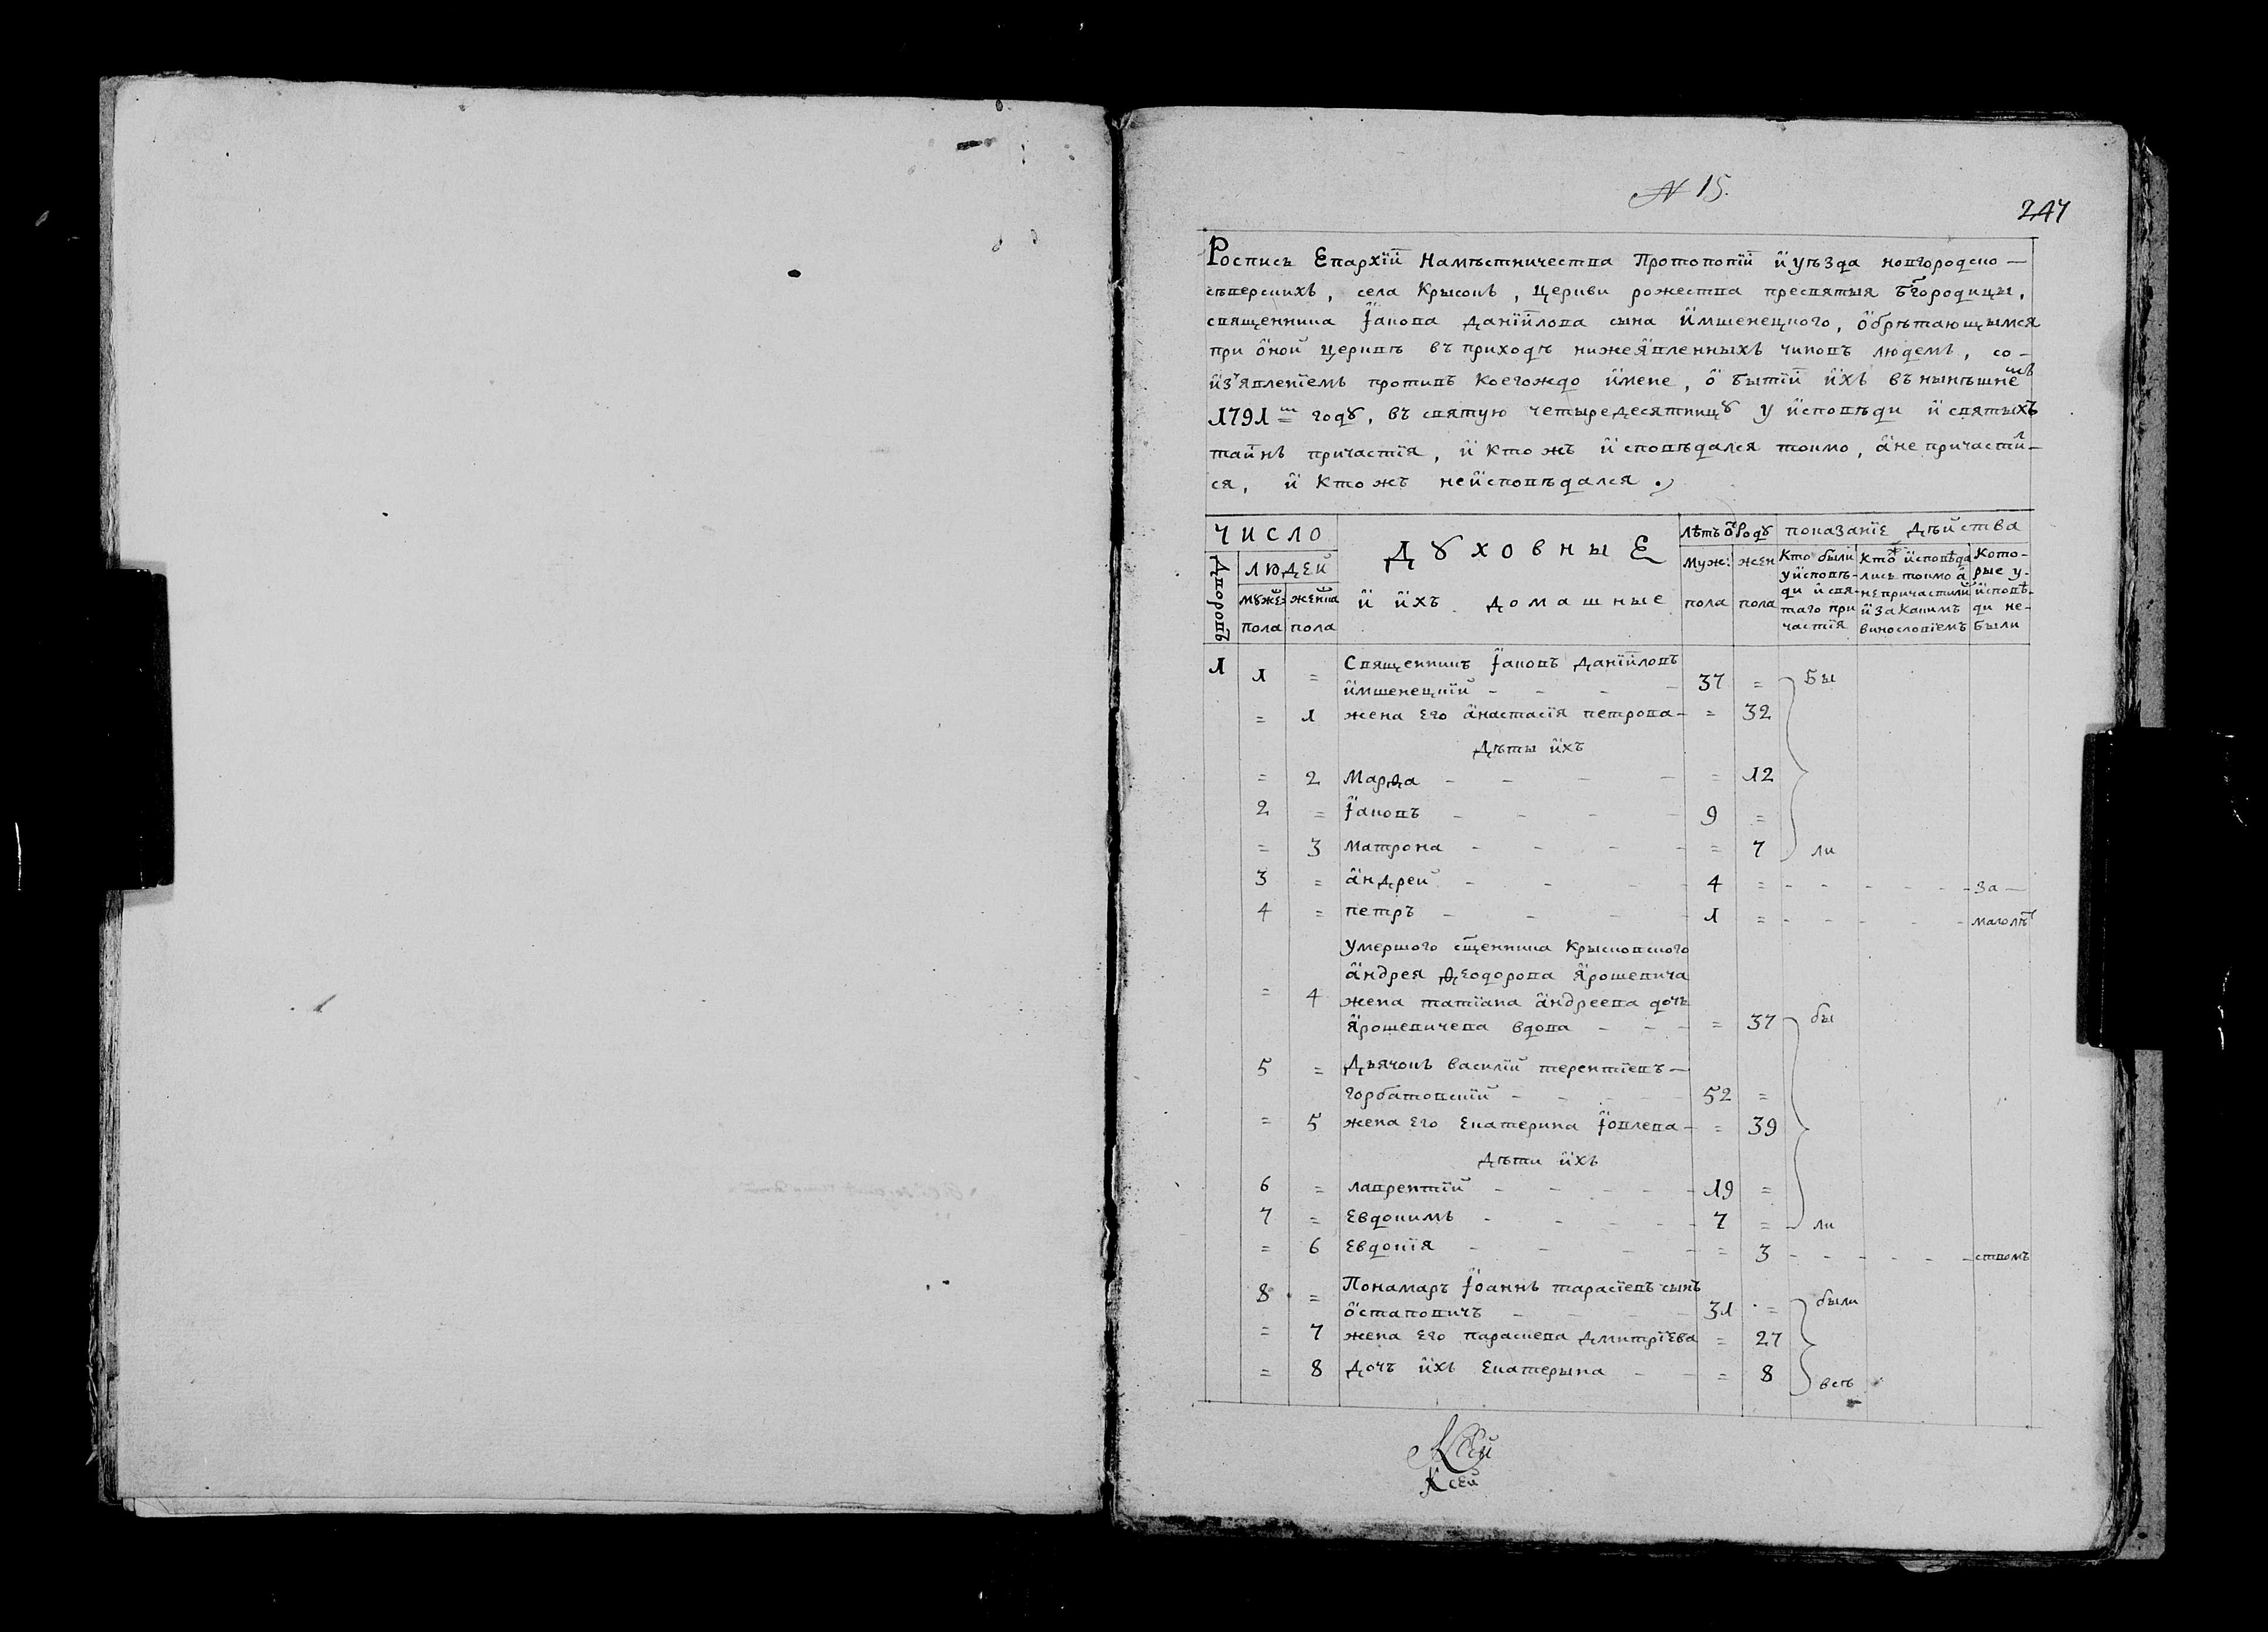 № 15.
247
Роспись Епархіи Намѣстничества Протопопіи и уѣзда новгородско–
сѣверскихъ, села Крысокъ, церкви рожества пресвятыя Бгородицы,
священника Іакова Даніилова сына Имшенецкого, обрѣтающымся
при оной церквѣ въ приходѣ нижеявленныхъ чиновъ людемъ, со–
изъявленіемъ противъ коегождо имене, о бытіи ихъ въ нынѣшнемъ
1791м годꙋ, въ святую четыредесятницꙋ у исповѣди и святыхъ
тайнъ причастія, и кто жъ исповѣдался токмо, а не причастил–
ся, и кто жъ неисповѣдался.
Число Дꙋховные Лѣтъ ѿ Родꙋ показаніе дѣйства
Дворовъ людей муж: жен Кто были у исповѣ–ди и свя–таго при частія Кто исповѣда лись токмо а не причастили и за какимъ винословіемъ Кото–рые у–исповѣ–ди не–были
мꙋжеска женска и ихъ домашные пола пола
пола пола
1 1 = Священникъ Іаковъ Даніиловъ
Имшенецкій – – – 37 = Бы
= 1 жена его Анастасія петрова – = 32
Дѣты ихъ
= 2 Марѳа – – – = 12
2 = Іаковъ – – – 9 =
= 3 матрона – – – = 7 ли
3 = Андрей – – – 4 = – – – за –
4 = петръ – – – 1 = – – – малолѣт
Умершого сщенника Крысковского
Андрея Ѳеодорова Ярошевича
= 4 жена татіана Андреева дочъ
Ярошевичева вдова – – – = 37 бы
5 = Дьячокъ василій терентіевъ –
Горбатовскій – – – 52 =
= 5 жена его Екатерина Іовлева – = 39
Дѣти ихъ
6 = лаврентій – – – 19 =
7 = Евдокимъ – – – 7 = ли
= 6 Евдокія – – – = 3 – – – ствомъ
8 = Пономаръ Іоаннъ тарасіевъ сынъ
Остаповичъ – – – 31 = были
= 7 жена его параскева Дмитріева = 27
= 8 Дочъ ихъ Екатерына – – = 8 всѣ
Ксей